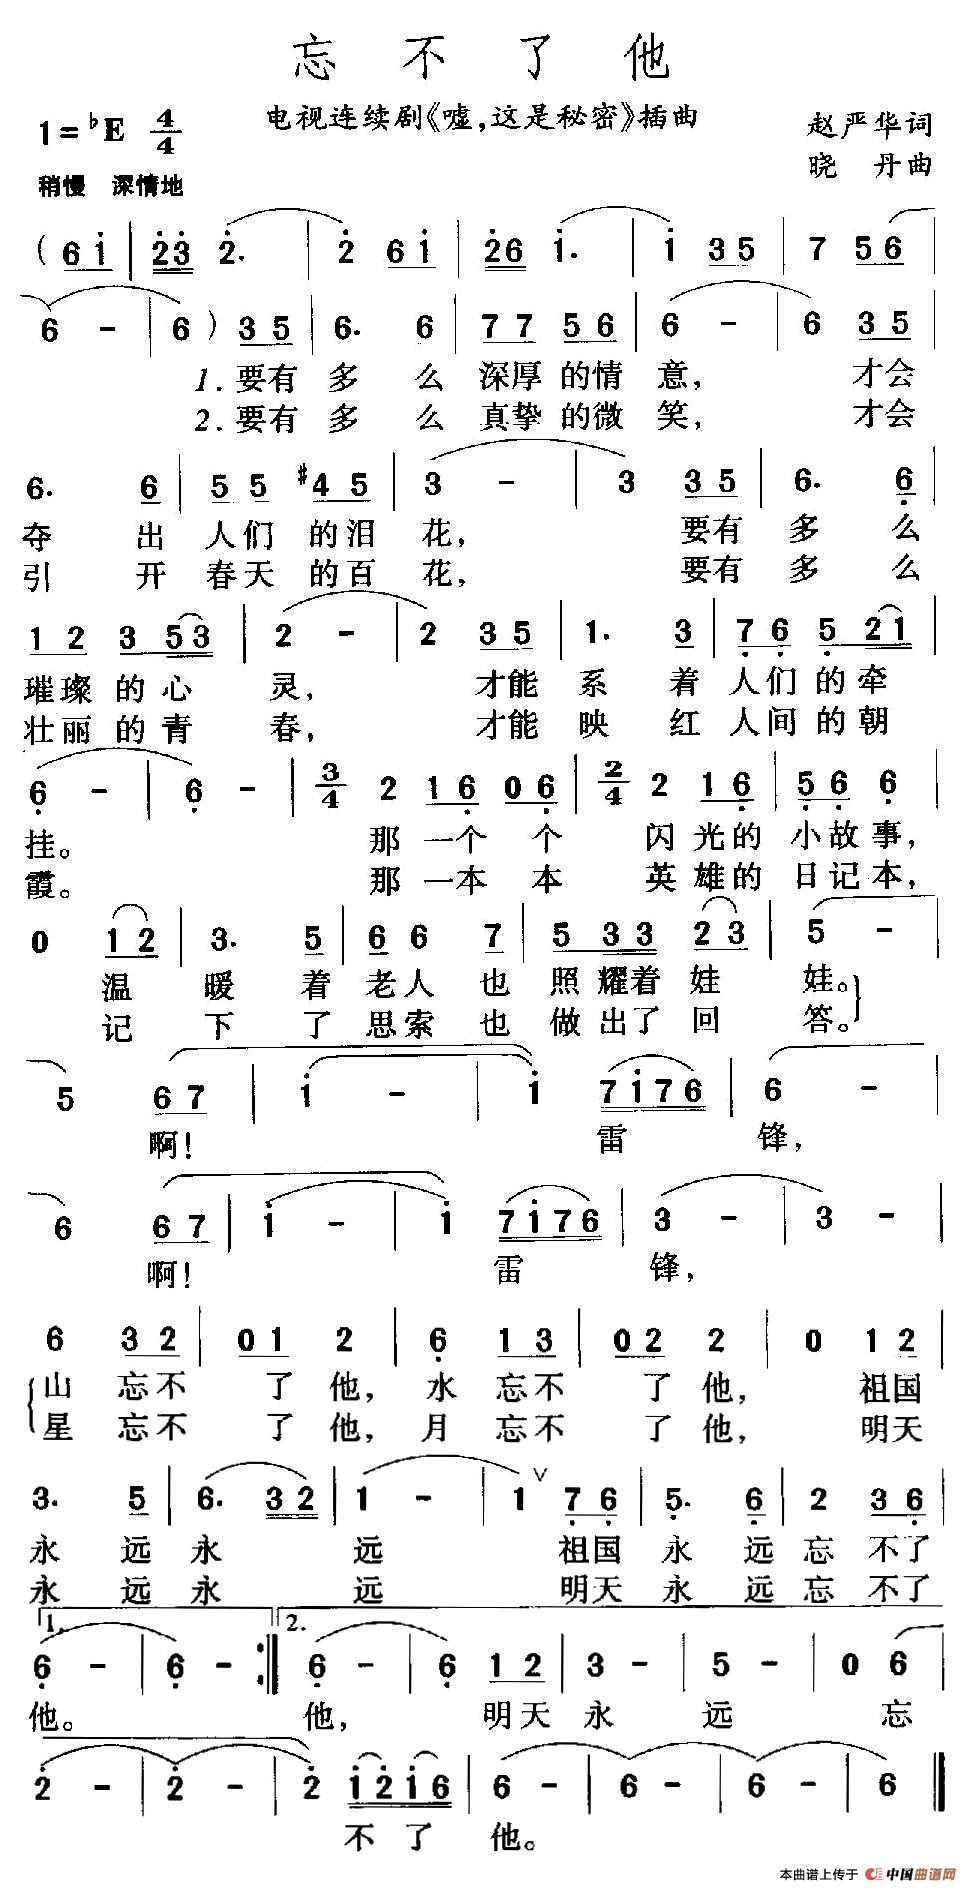 忘不了他
电视连续剧《嘘,这是秘密》插曲
1=♭E 4/4
赵严华词
晓丹曲
稍慢 深情地
(6i | 23 2. | 2 6i | 26 i. | i 35 | 7 56 |
6 - | 6)35 | 6. 6 | 77 56 | 6 - | 6 35 |
1.要有多么深厚的情意, 才会
2.要有多么真挚的微笑, 才会
6. 6 | 55 #45 | 3 - | 3 35 | 6. 6 |
夺出人们的泪花, 要有多么
引开春天的百花, 要有多么
12 353 | 2 - | 2 35 | 1. 3 | 76 521 |
璀璨的心灵, 才能系着人们的牵
壮丽的青春, 才能映红人间的朝
6 - | 6 - | 3/4 2 16 06 | 2/4 2 16 | 56 6 |
挂。 那一个个闪光的小故事,
霞。 那一本本英雄的日记本,
0 12 | 3. 5 | 66 7 | 533 23 | 5 - |
温暖着老人也照耀着娃娃。
记下了思索也做出了回答。
5 67 | i - | i 7i76 | 6 - |
啊! 雷锋,
6 67 | i - | i 7i76 | 3 - | 3 - |
啊! 雷锋,
6 32 | 01 2 | 6 13 | 02 2 | 0 12 |
山忘不了他, 水忘不了他, 祖国
星忘不了他, 月忘不了他, 明天
3. 5 | 6. 32 | 1 - | 1 ∨ 76 | 5. 6 | 2 36 |
永远永远 祖国永远忘不了
永远永远 明天永远忘不了
1. 2.
6 - | 6 - :‖ 6 - | 6 12 | 3 - | 5 - | 0 6 |
他。 他, 明天永远忘
2 - | 2 - | 2 i2i6 | 6 - | 6 - | 6 - | 6 ‖
不了他。
本曲谱上传于 中国曲谱网